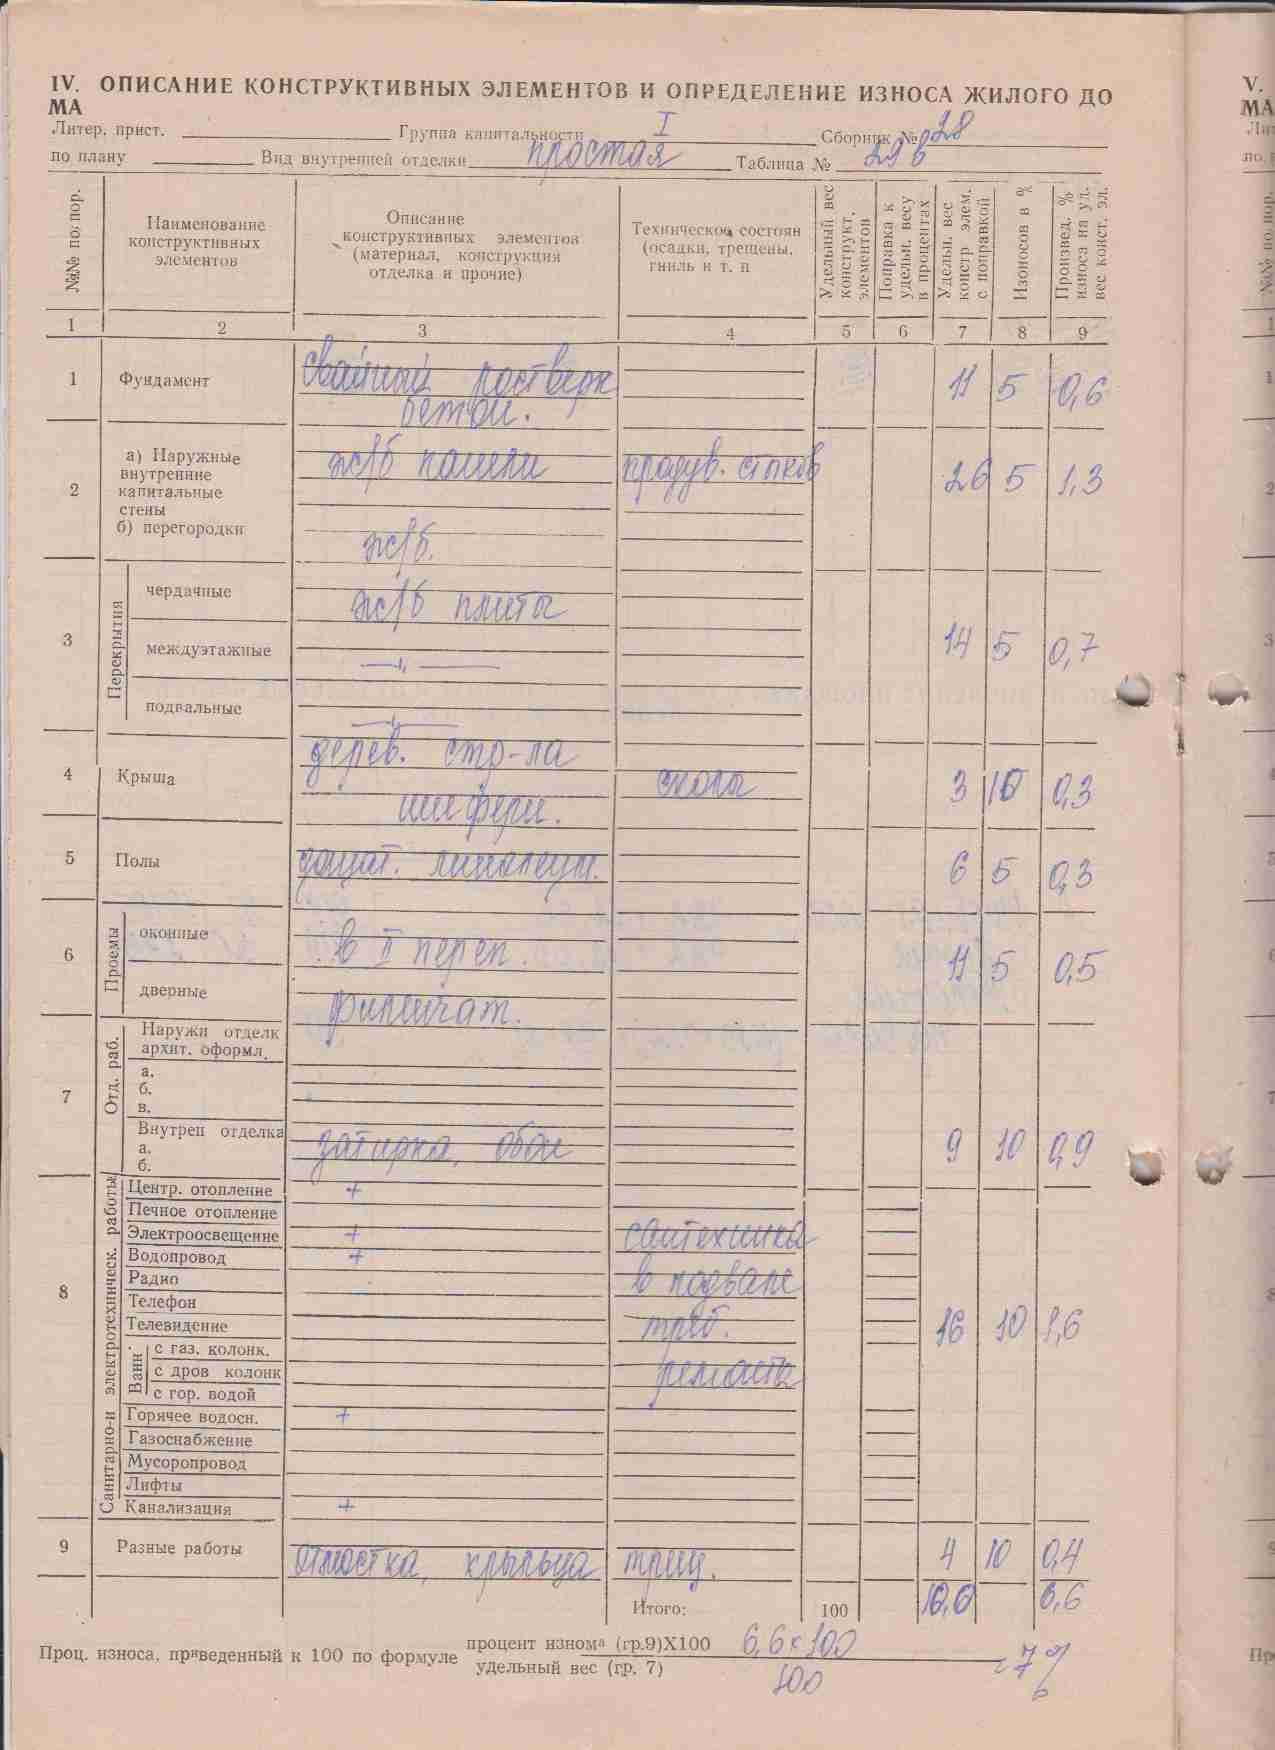 IV. ОПИСАНИЕ КОНСТРУКТИВНЫХ ЭЛЕМЕНТОВ И ОПРЕДЕЛЕНИЕ ИЗНОСА ЖИЛОГО ДО
МА
Литер. прист. Группа капитальности I Сборник № 28
по плану Вид внутренней отделки простая Таблица № 29в
№№ по пор.
Наименование
конструктивных
элементов
Описание
конструктивных элементов
(материал, конструкция
отделка и прочие)
Техническое состоян
(осадки, трещены,
гниль и т. п
Удельный вес
конструкт.
элементов
Поправка к
удельн. весу
в процентах
Удельн. вес
констр элем.
с поправкой
Изоносов в %
Произвед. %
износа на уд.
вес конст. эл.
1 2 3 4 5 6 7 8 9
1 Фундамент свайный ростверк 11 5 0,6
бетон.
2 а) Наружные
внутренние
капитальные
стены
б) перегородки
ж/б панели продув. стыков 26 5 1,3
ж/б.
3 Перекрытия
чердачные ж/б плиты
междуэтажные —„— 14 5 0,7
подвальные —„—
4 Крыша дерев. стр-ла сколы 3 10 0,3
шиферн.
5 Полы дощат. линолеум. 6 5 0,3
6 Проемы
оконные в II переп. 11 5 0,5
дверные филенчат.
7 Отд. раб.
Наружн отделк
архит. оформл.
а.
б.
в.
Внутрен отделка затирка, обои 9 10 0,9
а.
б.
8 Санитарно-и электротехническ. работы
Центр. отопление +
Печное отопление
Электроосвещение + сантехника
Водопровод +
Радио в подвале
Телефон
Телевидение треб. 16 10 1,6
Ванн
с газ. колонк.
с дров колонк ремонта
с гор. водой
Горячее водосн. +
Газоснабжение
Мусоропровод
Лифты
Канализация +
9 Разные работы отмостка, крыльца трещ. 4 10 0,4
Итого: 100 100 6,6
Проц. износа, приведенный к 100 по формуле
процент износа (гр.9)X100 6,6 х 100
удельный вес (гр. 7) 100
= 7 %